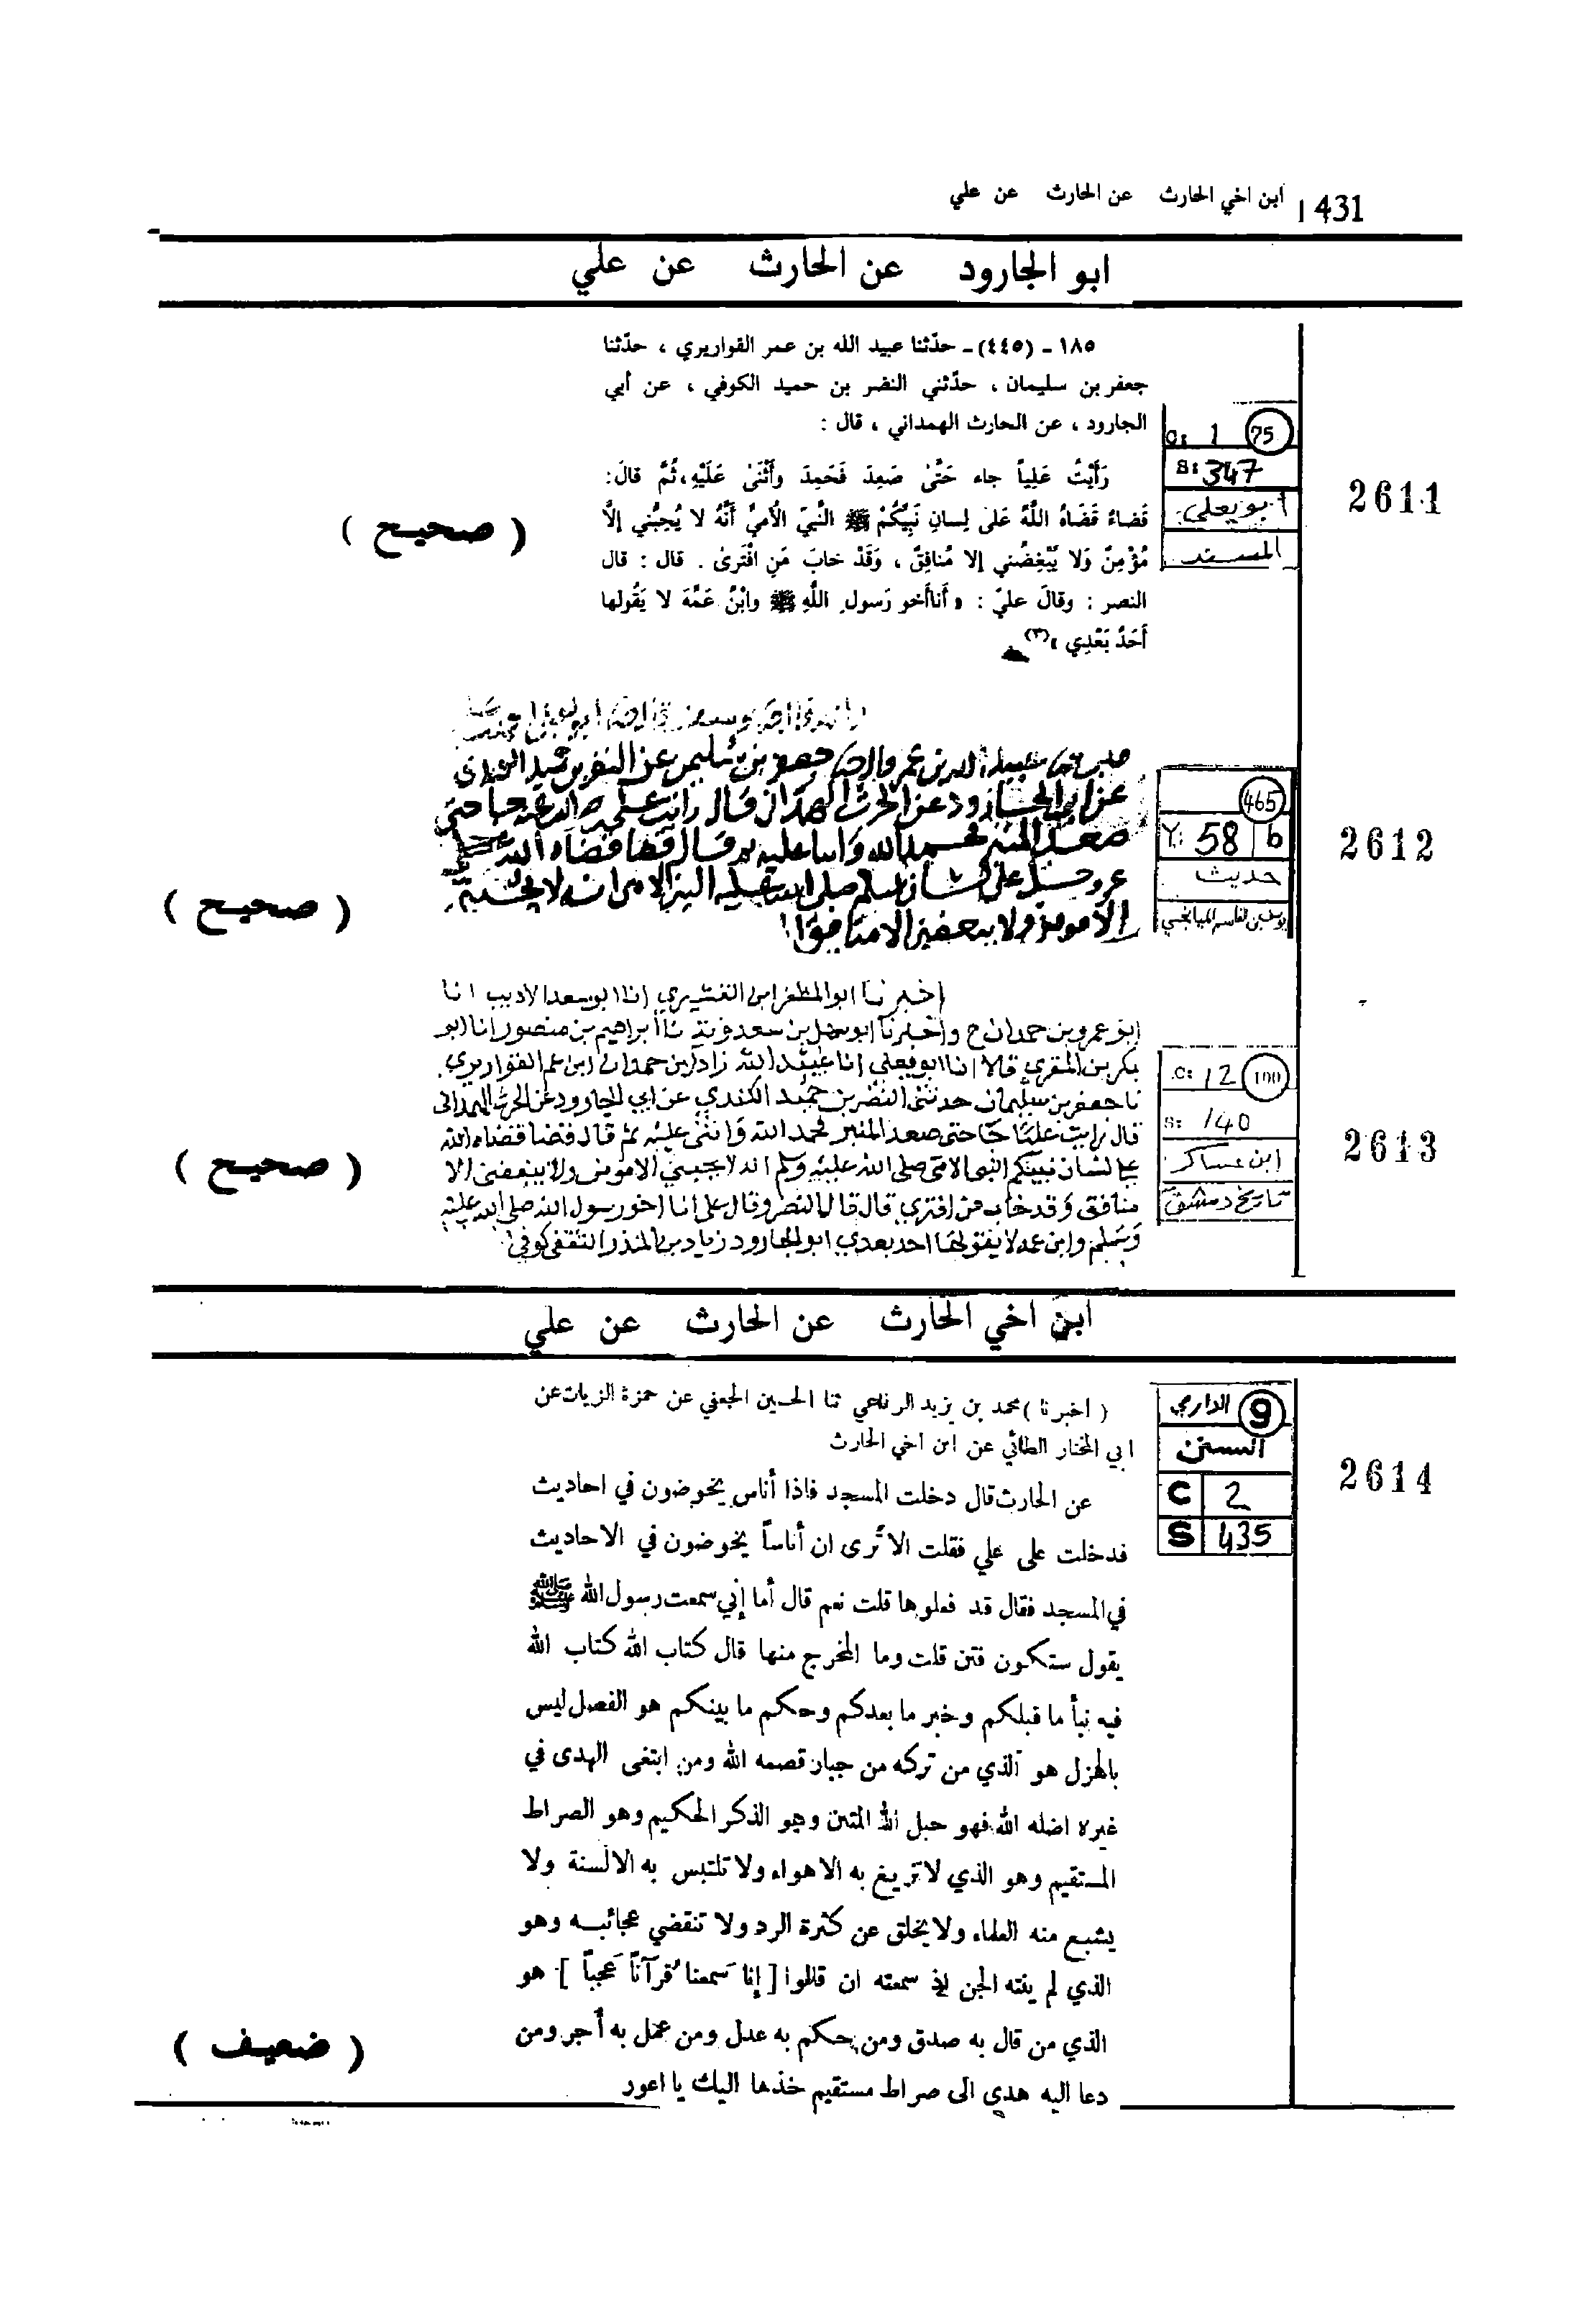 431 ابن اخي الحارث عن الحارث عن علي
ابو الجارود عن الحارث عن علي
١٨٥ - (٤٤٥) - حدّثنا عبيد الله بن عمر القواريري ، حدّثنا
جعفر بن سليمان ، حدّثني النضر بن حميد الكوفي ، عن أبي
الجارود ، عن الحارث الهمداني ، قال :
رَأَيْتُ عَلِياً جاء حَتَّىٰ صَعِدَ فَحَمِدَ وأَثْنَىٰ عَلَيْهِ، ثُمَّ قالَ:
قَضاءُ قَضَاهُ اللَّهُ عَلىٰ لِسانِ نَبِيِّكُمْ ﷺ النَّبِيِّ الأُمِّيِّ أَنَّهُ لا يُحِبُّني إلَّا
مُؤْمِنٌ وَلا يَبْغِضُني إلا مُنافِقٌ ، وَقَدْ خابَ مَنِ افْتَرىٰ . قال : قال
النصر : وقالَ عليّ : « أَنا أَخو رَسولِ اللَّهِ ﷺ وابْنُ عَمِّهَ لا يَقُولها
أَحَدٌ بَعْدِي »(٣)
C: 1 75
S: 347
أبو يعلى
المسند
2611
( صحيح )
عبيد الله بن عمر قال جعفر بن سليمن عن النضر بن حميد
عن ابي الجارود عن الحرث الهمداني قال رايت علي رضي الله عنه جا حتى
صعد المنبر فحمد الله واثنا عليه ثم قال قضا قضاه الله
عز وجل على لسان صلى الله عليه النبي الامي انه لا يحبني
الا مومن ولا يبغضني الا منافق
465
Y: 58 b
حديث
يوسف بن القاسم الميانجي
2612
( صحيح )
اخبرنا ابو المظفر ابن القشيري انا ابو سعد الاديب انا
ابو عمرو بن حمدان ح واخبرنا ابو سهل بن سعدويه نا ابراهيم بن منصور انا ابو
بكر بن المقري قالا انا ابو يعلى انا عبيد الله زاد ابن حمدان ابن عمر القواريري
نا جعفر بن سليمان حدثني النضر بن حميد الكندي عن ابي الجارود عن الحرث الهمداني
قال رايت عليا جا حتى صعد المنبر فحمد الله واثنى عليه ثم قال قضا قضاه الله
على لسان نبيكم النبي الامي صلى الله عليه وسلم انه لا يحبني الا مومن ولا يبغضني الا
منافق وقد خاب من افترى قال قال النضر وقال علي انا اخو رسول الله صلى الله عليه
وسلم وابن عمه لا يقولها احد بعدي ابو الجارود زياد بن المنذر الثقفي كوفي
C: 12 100
S: 140
ابن عساكر
تاريخ دمشق
2613
( صحيح )
ابن اخي الحارث عن الحارث عن علي
( اخبرنا ) محمد بن يزيد الرفاعي ثنا الحسين الجعفي عن حمزة الزيات عن
ابي المختار الطائي عن ابن اخي الحارث
عن الحارث قال دخلت المسجد فاذا أناس يخوضون في احاديث
فدخلت على علي فقلت الا ترى ان أناساً يخوضون في الاحاديث
في المسجد فقال قد فعلوها قلت نعم قال أما إني سمعت رسول الله ﷺ
يقول ستكون فتن قلت وما المخرج منها قال كتاب الله كتاب الله
فيه نبأ ما قبلكم وخبر ما بعدكم وحكم ما بينكم هو الفصل ليس
بالهزل هو الذي من تركه من جبار قصمه الله ومن ابتغى الهدى في
غيره اضله الله فهو حبل الله المتين وهو الذكر الحكيم وهو الصراط
المستقيم وهو الذي لا تزيغ به الاهواء ولا تلتبس به الالسنة ولا
يشبع منه العلماء ولا يخلق عن كثرة الرد ولا تنقضي عجائبه وهو
الذي لم ينته الجن إذ سمعته ان قالوا [ إنا سَمعنا قُرآناً عَجباً ] هو
الذي من قال به صدق ومن حكم به عدل ومن عمل به أجر ومن
دعا اليه هدي الى صراط مستقيم خذها اليك يا اعور
9 الدارمي
السنن
C 2
S 435
2614
( ضعيف )